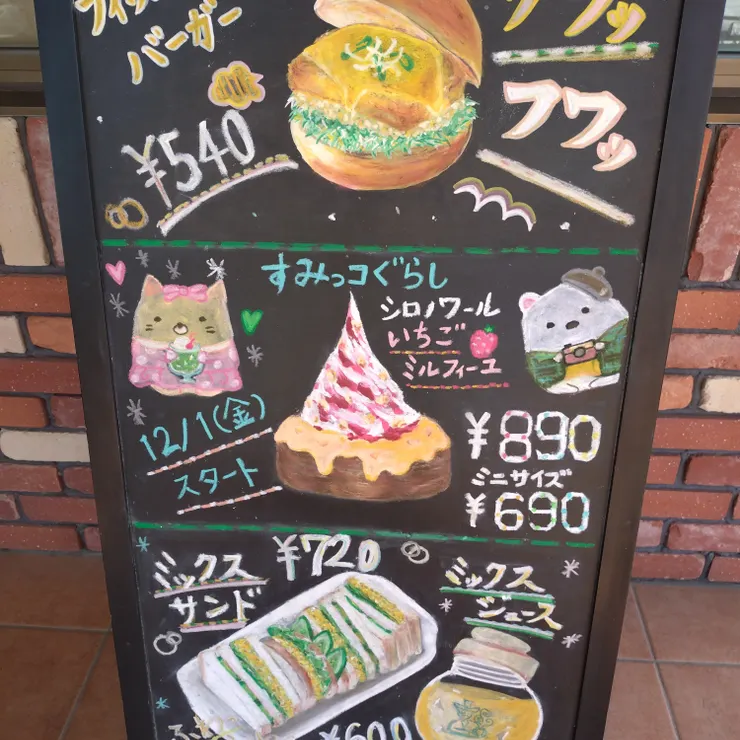 バーガー
¥540
フワッ
すみっコぐらし
シロノワール
いちご
ミルフィーユ
12/1(金)
スタート
¥890
ミニサイズ
¥690
ミックス
サンド
¥720
ミックス
ジュース
¥600